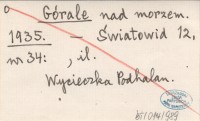 Górale nad morzem.
1935. — Światowid 12,
nr 34: , il.
Wycieczka Podhalan.